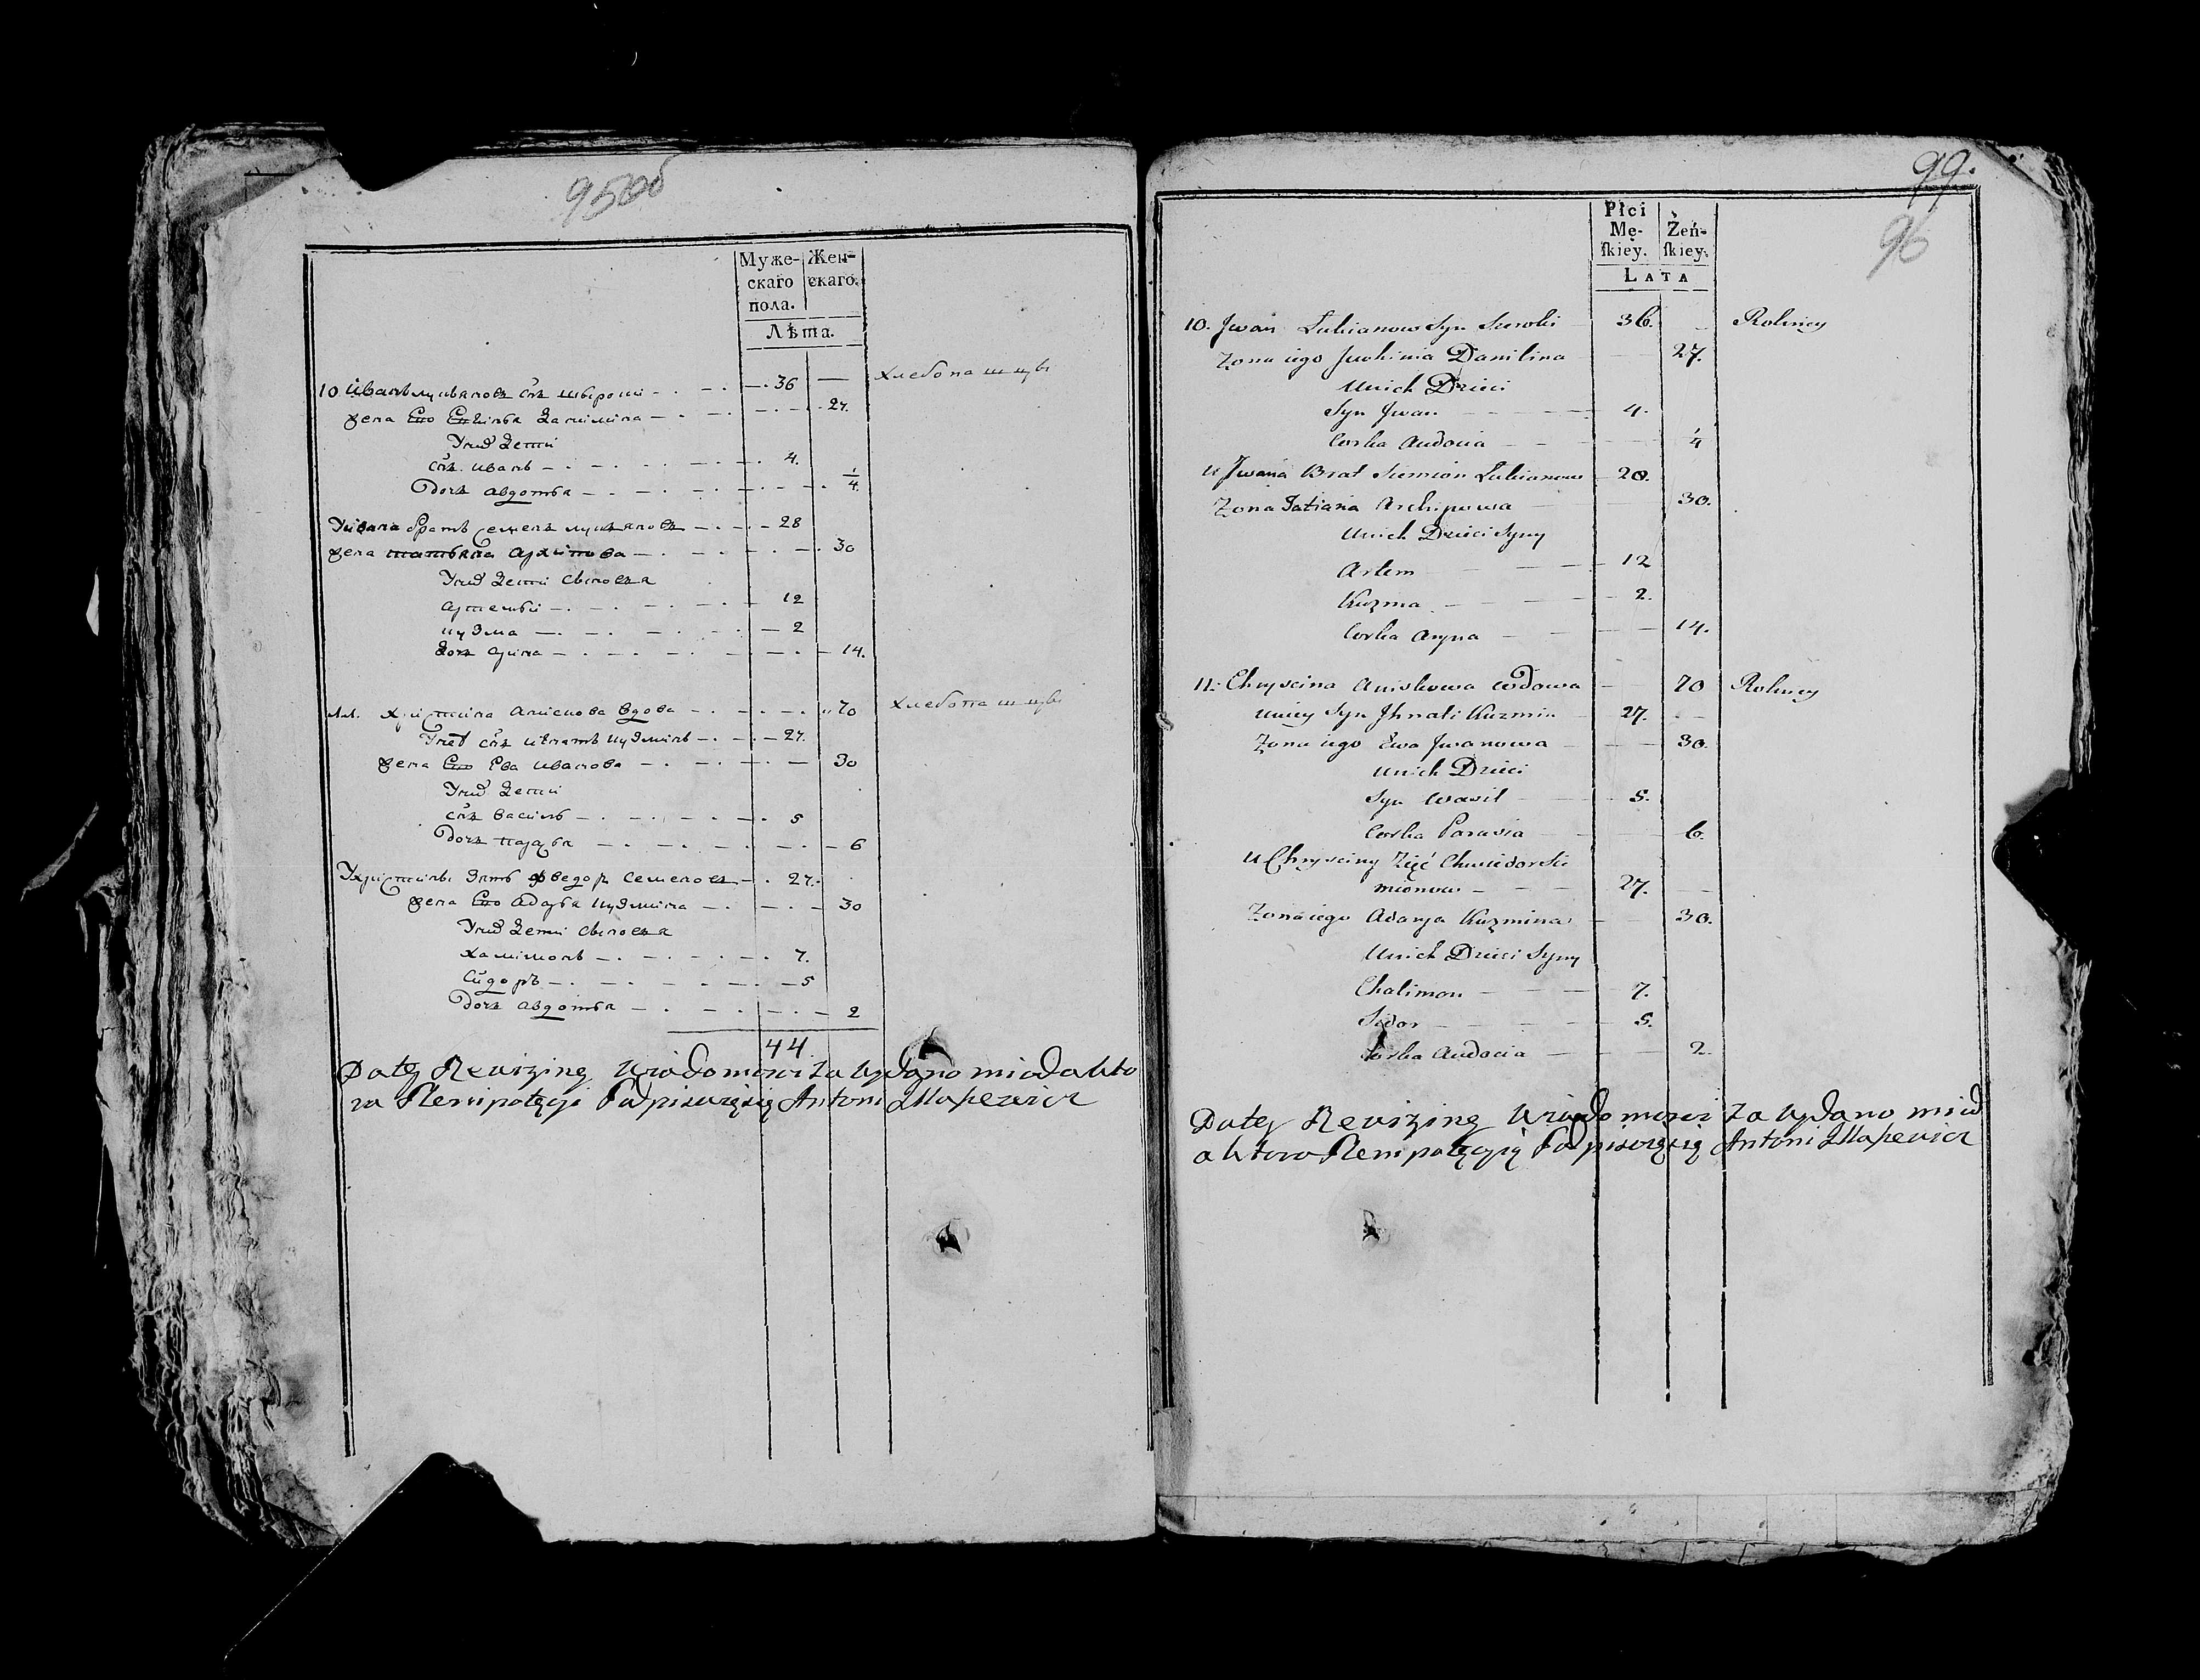 95об
Муже-
скаго
пола.
Жен-
скаго.
Лѣта.
10 Иванъ Лукьяновъ снъ 36 — хлебопашцы
жена Его Данилина 27.
У них дети
снъ Иванъ 4.
дочь Авдотья 1/4.
У Ивана братъ Семенъ Лукьяновъ 28
жена Татьяна Архипова 30
У них дети сыновья
Артемьи 12
Кузма 2
дочь Арина 14.
Христина Анискова вдова 70 хлебопашцы
У неё снъ Игнатъ Кузминъ 27.
жена Его Ева Иванова 30
У них дети
снъ Василь 5
дочь 6
У Христины зять Фведор Семеновъ 27.
жена Его Адарья Кузмина 30
У них дети сыновья
Халимонъ 7.
Сидоръ 5
дочь Авдотья 2
44
Do tey Rewizing Wiadomosci Zawydano miodakto
ra Plenipotęcyi Podpisuięsię Antoni
99.
96
Płci
Mę-
ſkiey.
Żeń-
ſkiey.
LATA
10. Jwan Lukianow Syn 36. Rolnicy
Zona iego Juchinia Danilina 27.
U nich Dzieci
Syn Jwan 4.
Corka Audocia 1/4
U Jwana Brat Siemion Lukianow 28.
Zona Tatiana Archipowa 30.
U nich Dzieci Syny
Artem 12
Kuzma 2.
Corka Aryna 14.
11. Chryscina Aniskowa wdowa 70 Rolnicy
U niey Syn Jhnati Kuzmin 27.
Zona iego Ewa Jwanowa 30.
U nich Dzieci
Syn Wasil 5.
Corka Parasia 6.
U Chrysciny Zięć Chwiedor Sie
mionow 27.
Zona iego Adarya Kuzmina 30.
U nich Dzieci Syny
Chalimon 7.
Sidor 5.
Corka Audocia 2.
Do tey Rewizing Wiadomosci Zawydano miod
aktora Plenipotęcyią Podpisuięsię Antoni